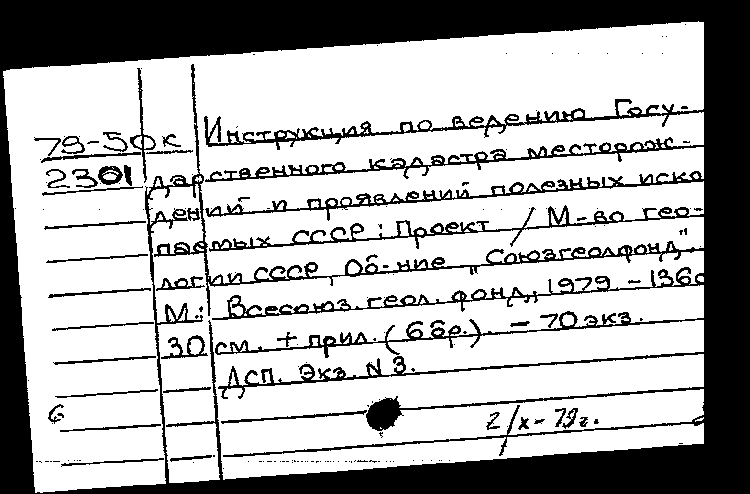 79-5ДК Инструкция по ведению Госу-
2301 дарственного кадастра месторож-
дений и проявлений полезных иско
паемых СССР: Проект / М-во гео-
логии СССР, Об-ние "Союзгеолфонд".
М.: Всесоюз. геол. фонд, 1979 - 136с
30 см. + прил. (6 бр.). - 70 экз.
ДСП. Экз. N 3.
6
2/х-79г.